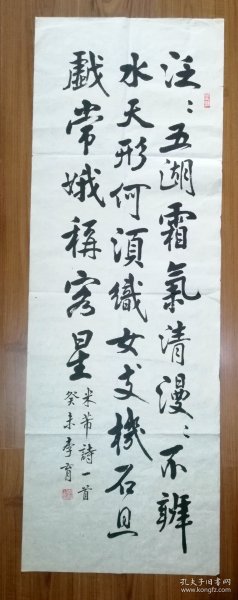 泛﹕五湖霜氣清漫﹕不辨
水天形何須織女支機石且
戲常娥稱客星
米芾詩一首
癸未李育
孔夫子旧书网
www.kongfz.com